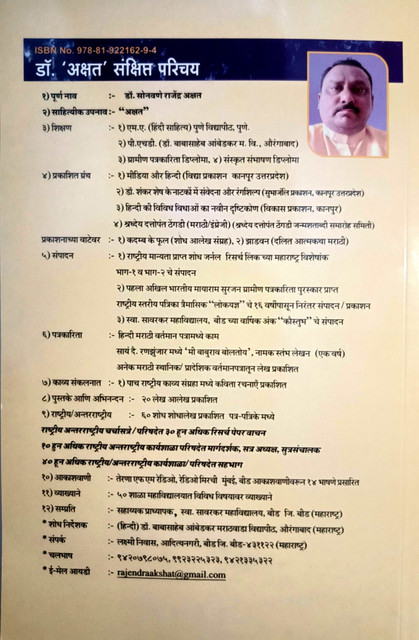 ISBN No. 978-81-922162-9-4
डॉ. 'अक्षत' संक्षिप्त परिचय
१) पूर्ण नाव :- डॉ. सोनवणे राजेंद्र अक्षत
२) साहित्यीक उपनाव :- "अक्षत"
३) शिक्षण :- १) एम.ए. (हिंदी साहित्य) पुणे विद्यापीठ, पुणे.
२) पी.एचडी. (डॉ. बाबासाहेब आंबेडकर म. वि., औरंगाबाद)
३) ग्रामीण पत्रकारिता डिप्लोमा, ४) संस्कृत संभाषण डिप्लोमा
४) प्रकाशित ग्रंथ :- १) मीडिया और हिन्दी (विद्या प्रकाशन कानपुर उत्तरप्रदेश)
२) डॉ. शंकर शेष के नाटकों में संवेदना और रंगशिल्प (सुभांजलि प्रकाशन, कानपुर उत्तरप्रदेश)
३) हिन्दी की विविध विधाओं का नवीन दृष्टिकोण (विकास प्रकाशन, कानपुर)
४) श्रध्देय दत्तोपंत ठेंगडी (मराठी/इंग्रेजी) (श्रध्देय दत्तोपंत ठेंगडी जन्मशताब्दी समारोह समिती)
प्रकाशनाच्या वाटेवर :- १) कदम्ब के फूल (शोध आलेख संग्रह), २) झाडवन (दलित आत्मकथा मराठी)
५) संपादन :- १) राष्ट्रीय मान्यता प्राप्त शोध जर्नल रिसर्च लिंक च्या महाराष्ट्र विशेषांक
भाग-१ व भाग-२ चे संपादन
२) पहला अखिल भारतीय मायाराम सुरजन ग्रामीण पत्रकारिता पुरस्कार प्राप्त
राष्ट्रीय स्तरीय पत्रिका त्रैमासिक "लोकयज्ञ" चे १६ वर्षांपासून निरंतर संपादन / प्रकाशन
३) स्वा. सावरकर महाविद्यालय, बीड च्या वार्षिक अंक "कौस्तुभ" चे संपादन
६) पत्रकारिता :- हिन्दी मराठी वर्तमान पत्रामध्ये काम
सायं दै. रणझुंजार मध्ये 'मी बाबुराव बोलतोय', नामक स्तंभ लेखन (एक वर्ष)
अनेक मराठी स्थानिक/ प्रादेशिक वर्तमानपत्रातून लेख प्रकाशित
७) काव्य संकलनात :- १) पाच राष्ट्रीय काव्य संग्रहा मध्ये कविता रचनाएँ प्रकाशित
८) पुस्तके आणि अभिनन्दन :- २० लेख आलेख प्रकाशित
९) राष्ट्रीय/अन्तरराष्ट्रीय :- ६० शोध शोधालेख प्रकाशित पत्र-पत्रिके मध्ये
राष्ट्रीय अन्तरराष्ट्रीय चर्चासत्रे / परिषदेत ३० हून अधिक रिसर्च पेपर वाचन
१० हून अधिक राष्ट्रीय अन्तराष्ट्रीय कार्यशाळा परिषदेत मार्गदर्शक, सत्र अध्यक्ष, सुत्रसंचालक
४० हून अधिक राष्ट्रीय/अन्तराष्ट्रीय कार्यशाळा/ परिषदेत सहभाग
१०) आकाशवाणी :- तेरणा एफ एम रेडिओ, रेडिओ मिरची मुंबई, बीड आकाशवाणीवरून १४ भाषणे प्रसारित
११) व्याख्याने :- ५० शाळा महाविद्यालयात विविध विषयावर व्याख्याने
१२) सम्प्रति :- सहय्यक प्राध्यापक, स्वा. सावरकर महाविद्यालय, बीड जि. बीड (महाराष्ट्र)
* शोध निदेशक :- (हिन्दी) डॉ. बाबासाहेब आंबेडकर मराठवाडा विद्यापीठ, औरंगाबाद (महाराष्ट्र)
* संपर्क :- लक्ष्मी निवास, आदित्यनगरी, बीड जि. बीड-४३११२२ (महाराष्ट्र)
* चलभाष :- ९४२०७९८०७५, ९९२३२२५३२३, ९४२१३३५३२२
* ई-मेल आयडी :- rajendraakshat@gmail.com